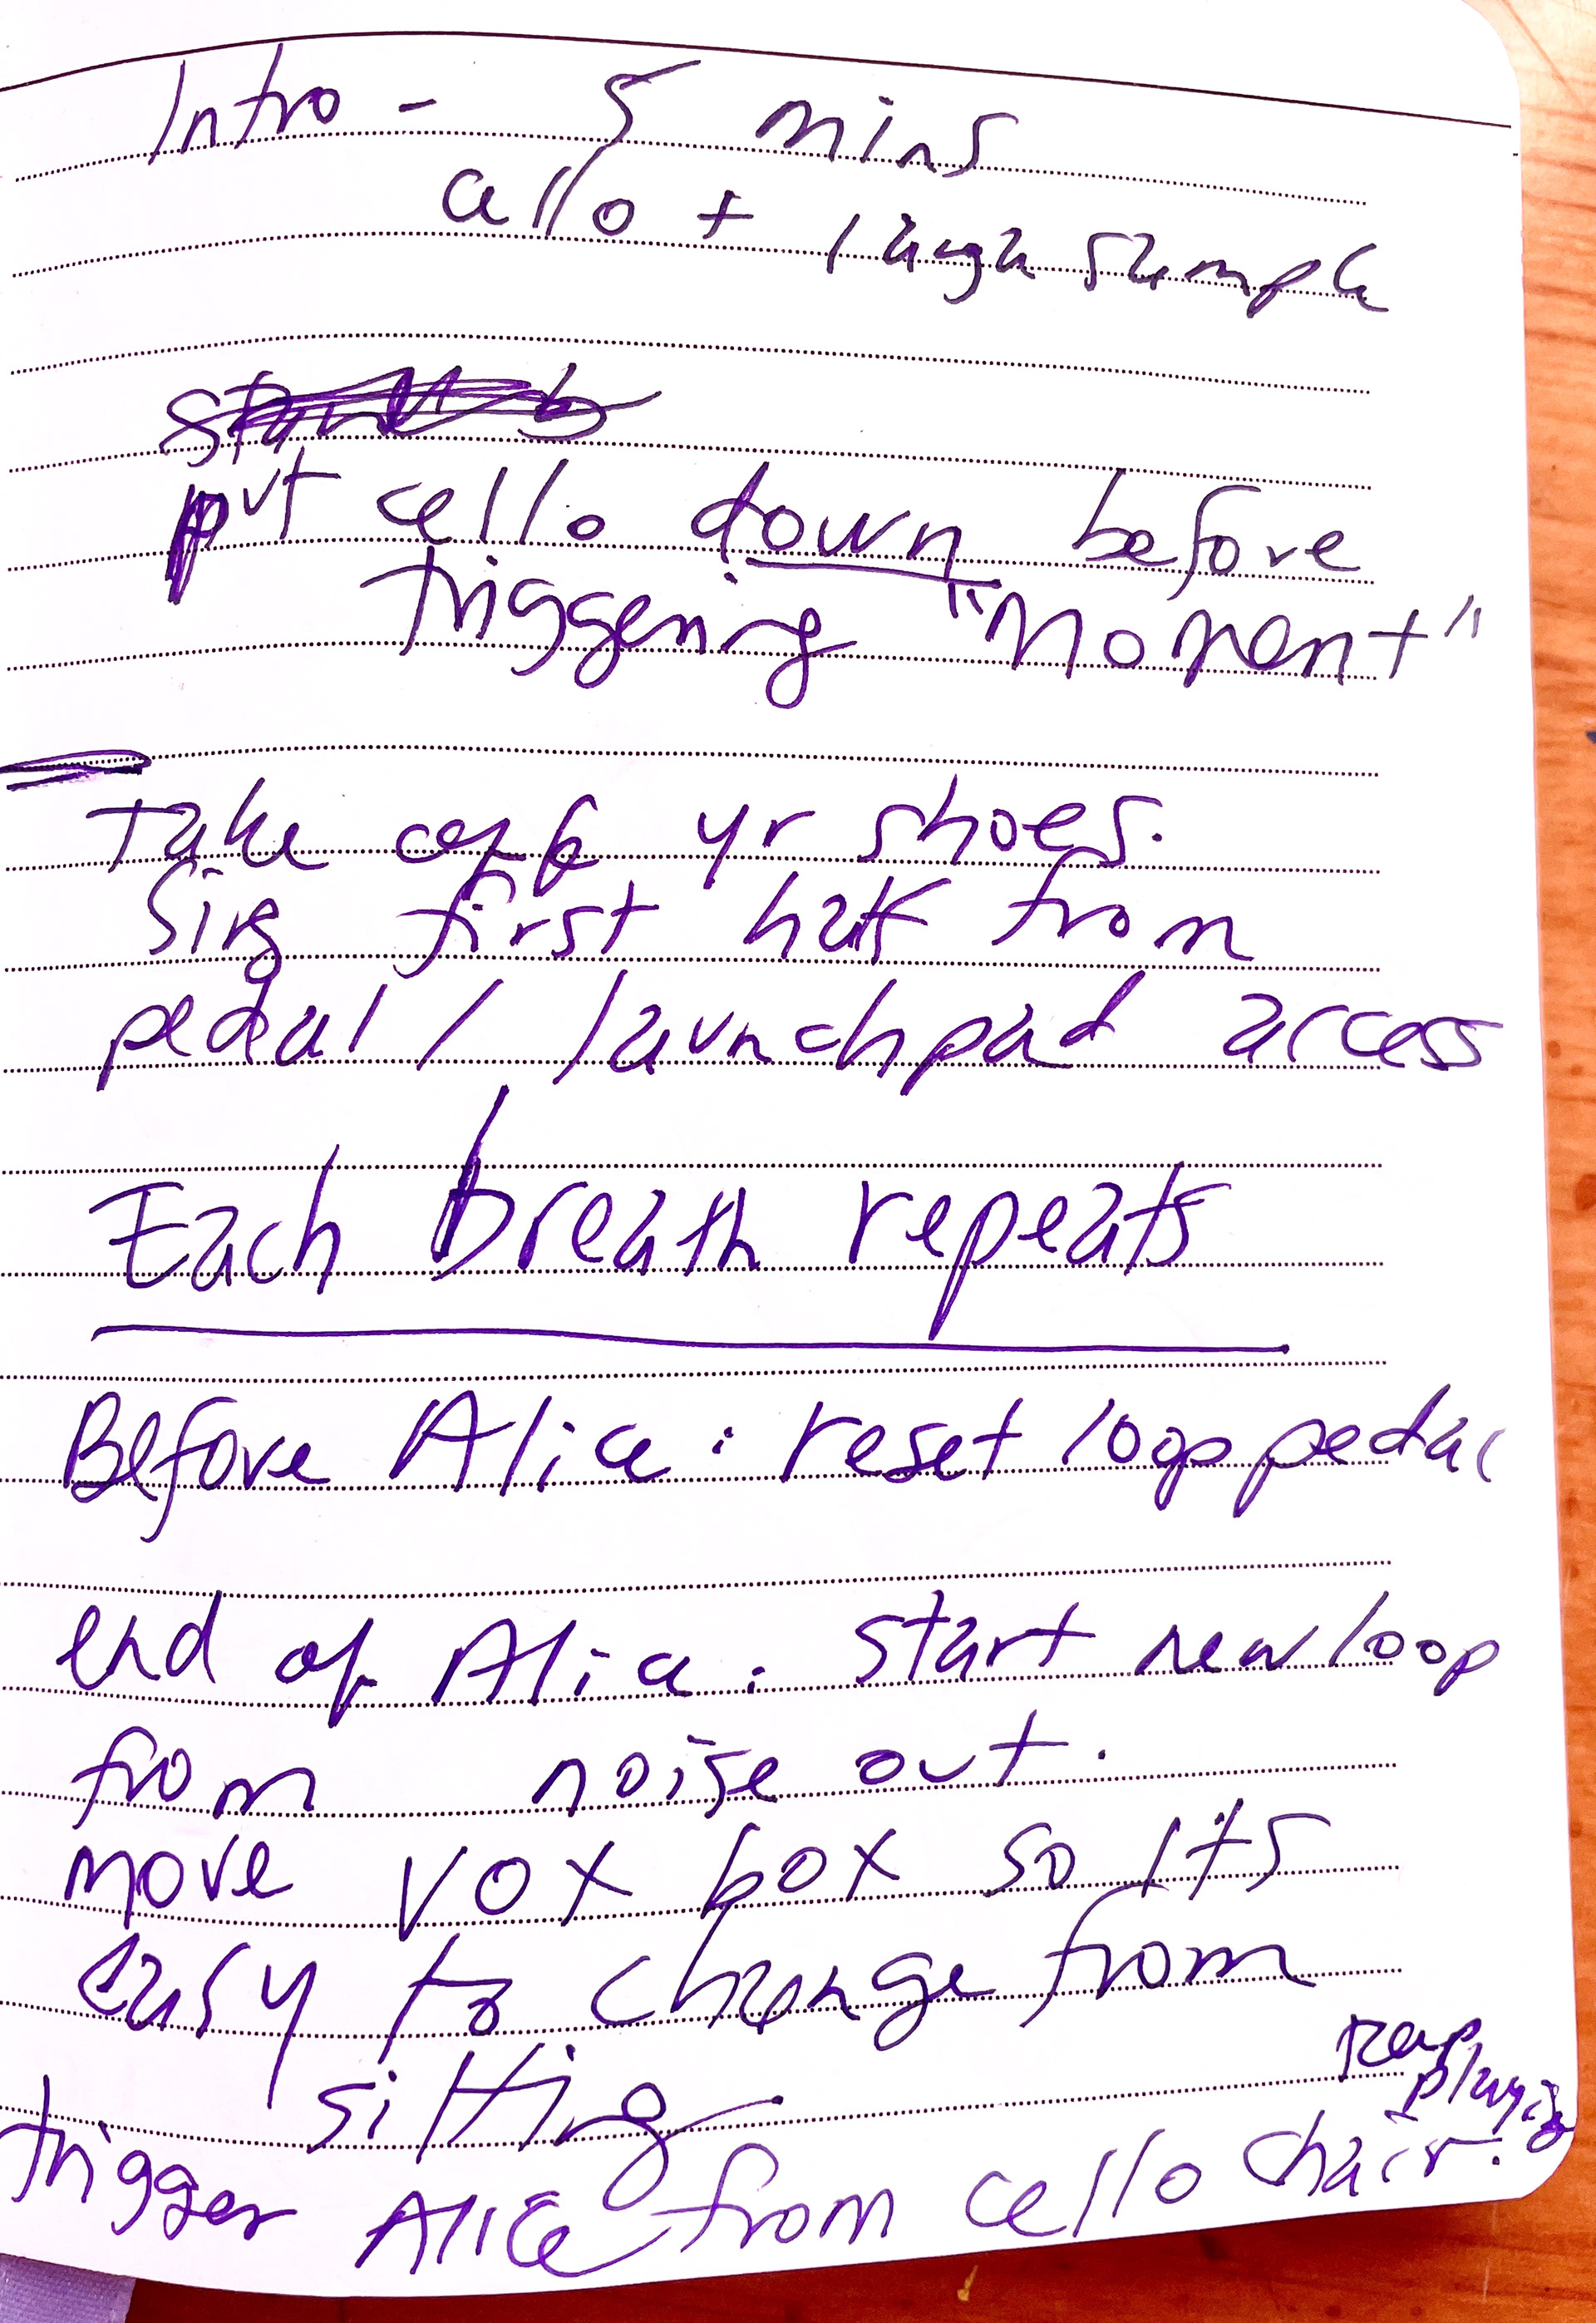 Intro - 5 mins
cello + laugh sample
put cello down before
triggering "Moment"
Take off yr shoes.
Sing first half from
pedal / launchpad access
Each breath repeats
Before Alice : reset loop pedal
end of Alice : start new loop
from noise out.
move vox box so its
easy to change from
sitting
keep
playing
trigger Alice from cello chair.